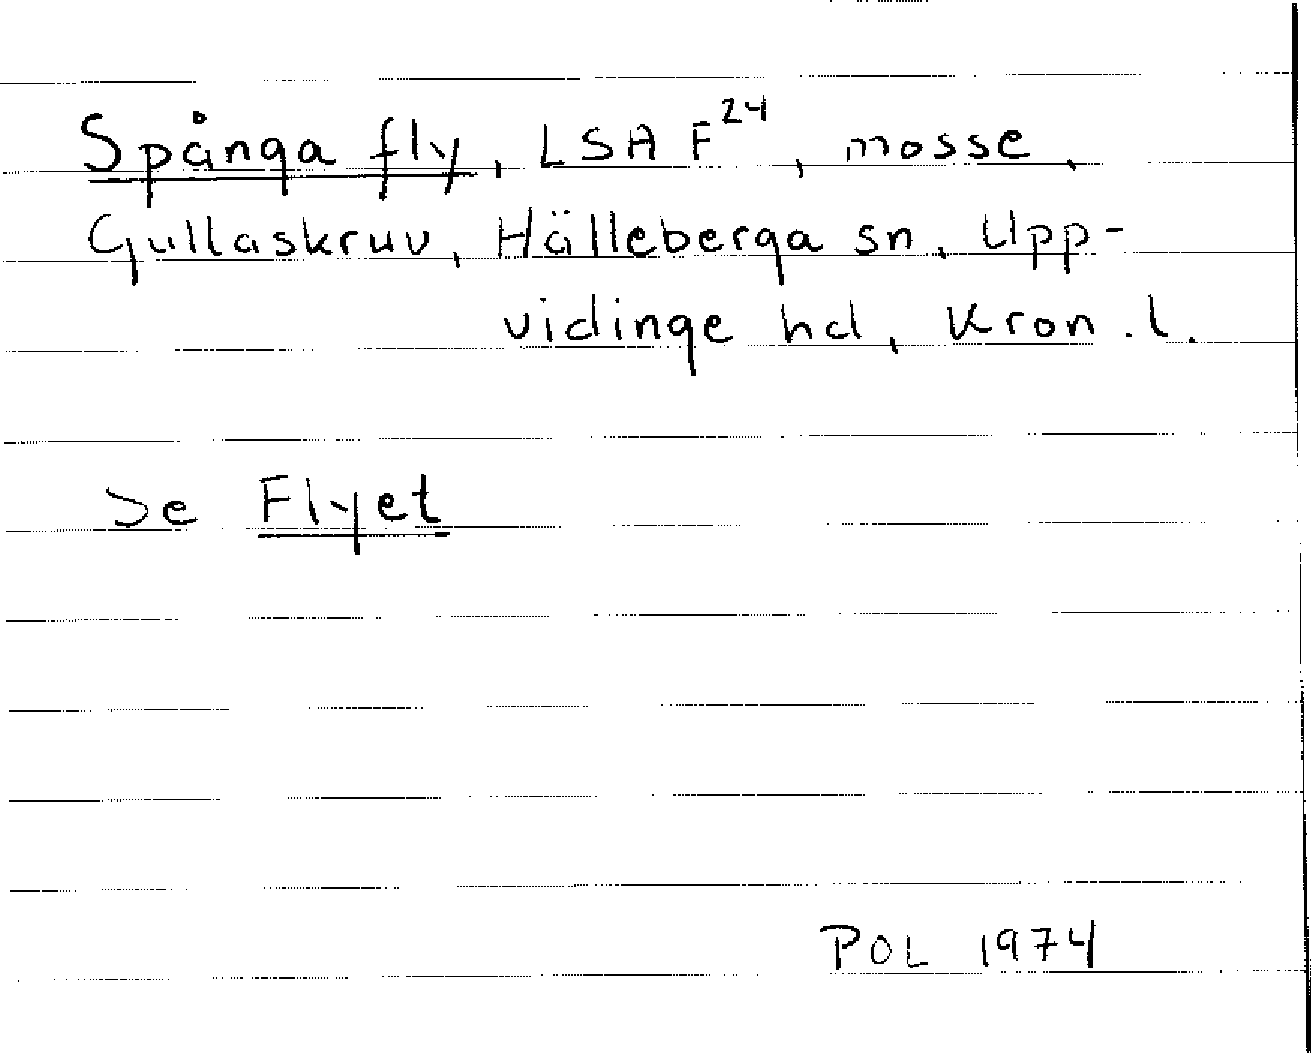 Spånga fly, LSA F24, mosse,
Gullaskruv, Hälleberga sn, Upp-
vidinge hd, Kron. l.
Se Flyet
POL 1974